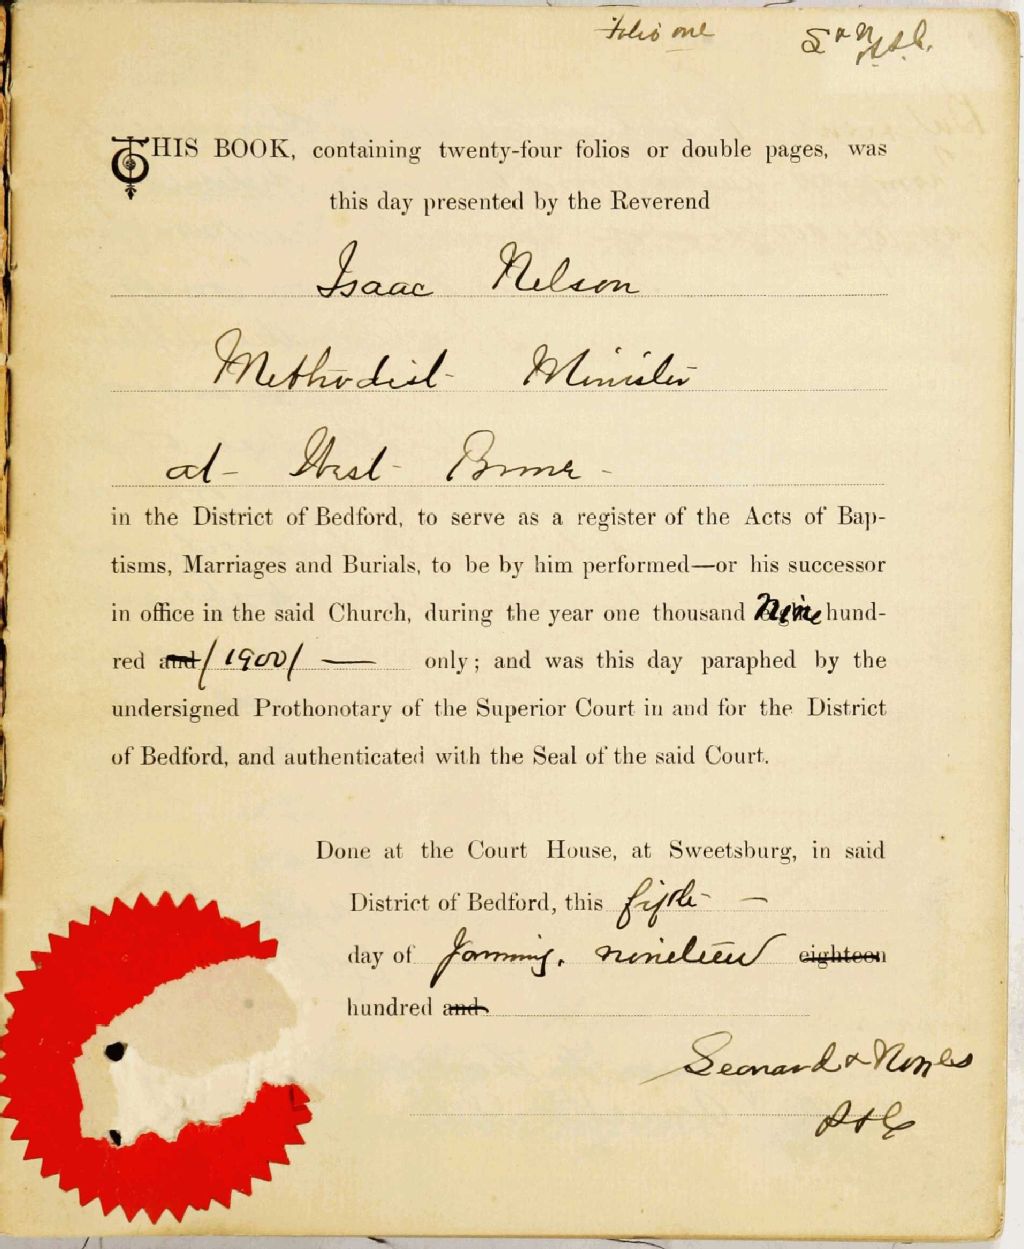 Folio one L & N P.S.C.
THIS BOOK, containing twenty-four folios or double pages, was
this day presented by the Reverend
Isaac Nelson
Methodist Minister
at West Brome
in the District of Bedford, to serve as a register of the Acts of Bap-
tisms, Marriages and Burials, to be by him performed—or his successor
in office in the said Church, during the year one thousand Nine hund-
red and /1900/ — only; and was this day paraphed by the
undersigned Prothonotary of the Superior Court in and for the District
of Bedford, and authenticated with the Seal of the said Court.
Done at the Court House, at Sweetsburg, in said
District of Bedford, this fifth —
day of January, nineteen eighteen
hundred and
Leonard & Noyes
P.S.C.